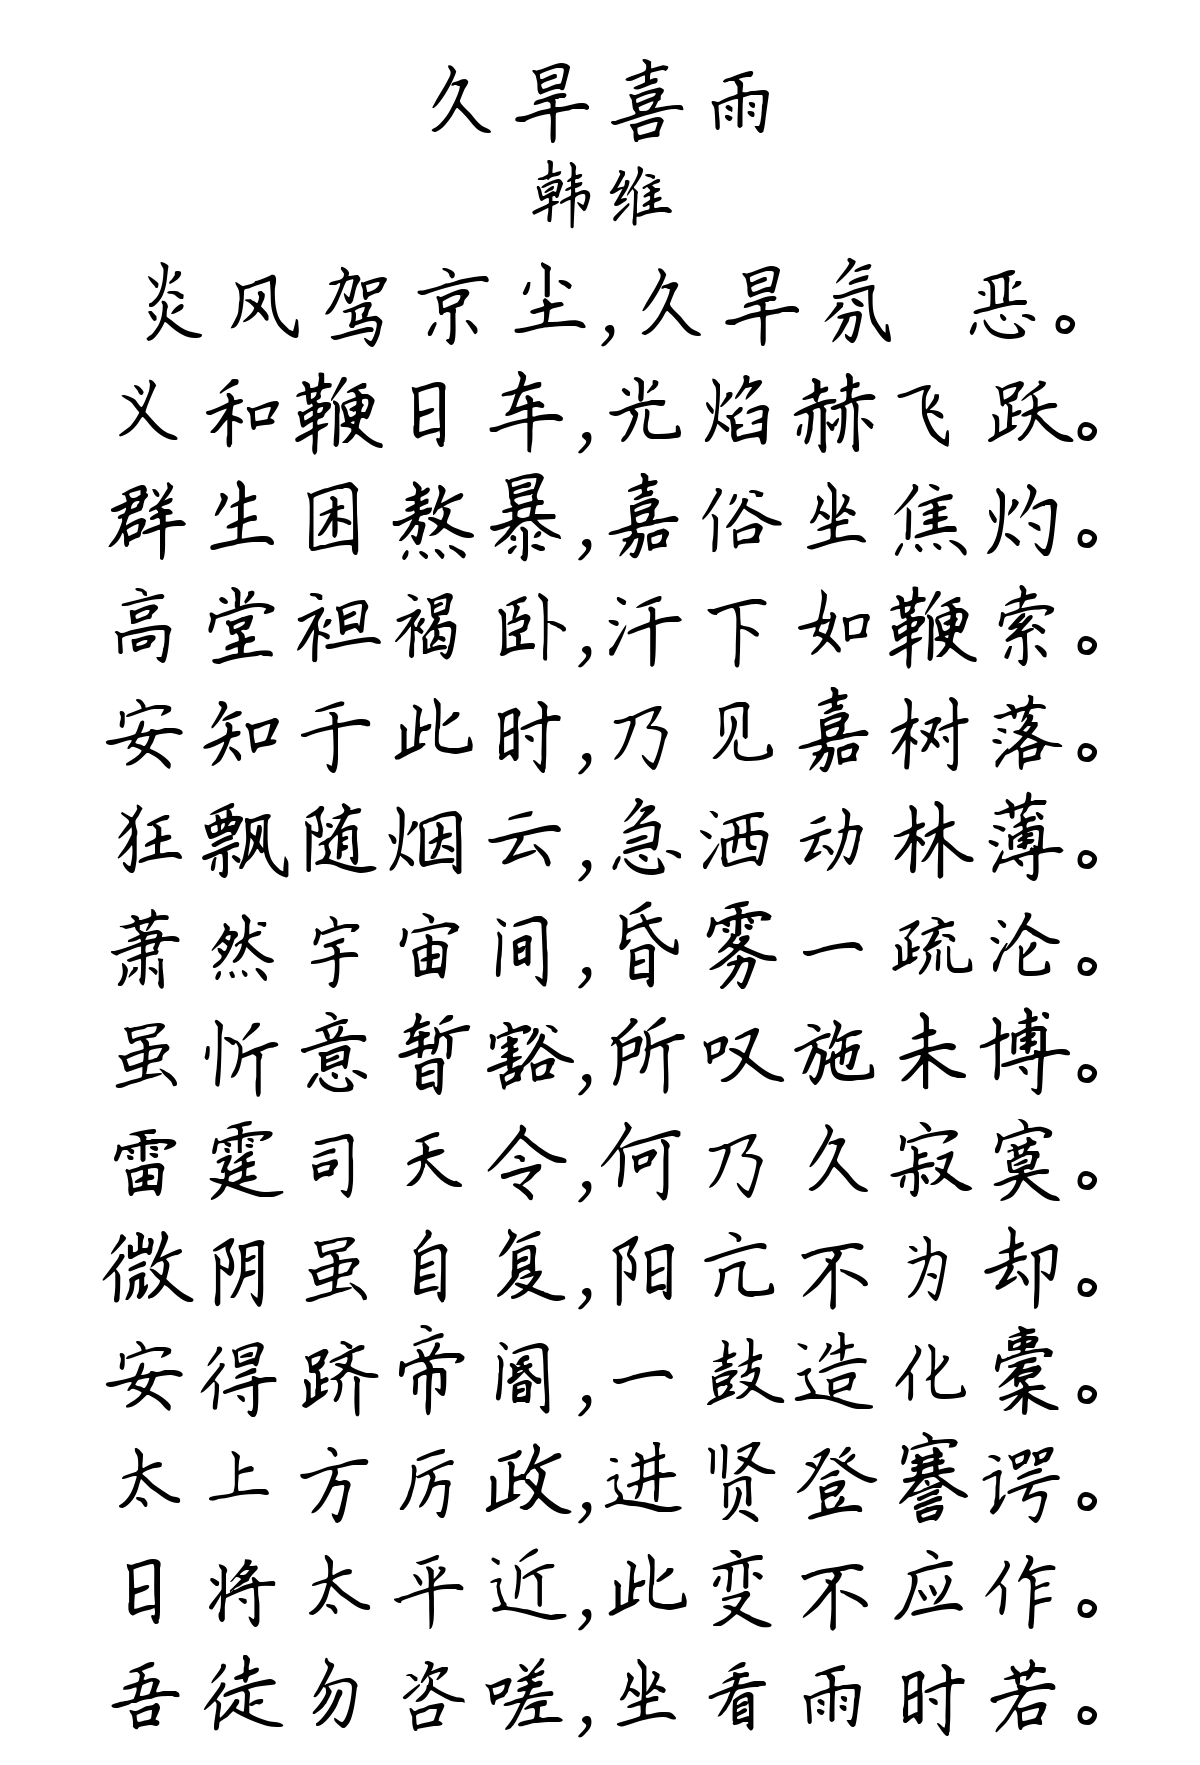 久旱喜雨
韩维
炎风驾京尘,久旱氛 恶。
义和鞭日车,光焰赫飞跃。
群生困熬暴,嘉俗坐焦灼。
高堂袒褐卧,汗下如鞭索。
安知于此时,乃见嘉树落。
狂飘随烟云,急洒动林薄。
萧然宇宙间,昏雾一疏沦。
虽忻意暂豁,所叹施未博。
雷霆司天令,何乃久寂寞。
微阴虽自复,阳亢不为却。
安得跻帝阍,一鼓造化橐。
太上方厉政,进贤登謇谔。
日将太平近,此变不应作。
吾徒勿咨嗟,坐看雨时若。